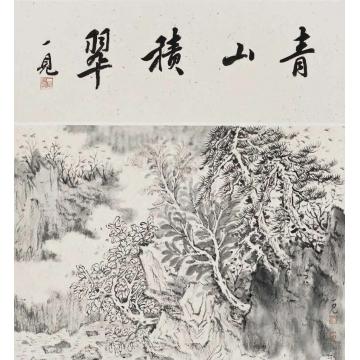 青山積翠
一見